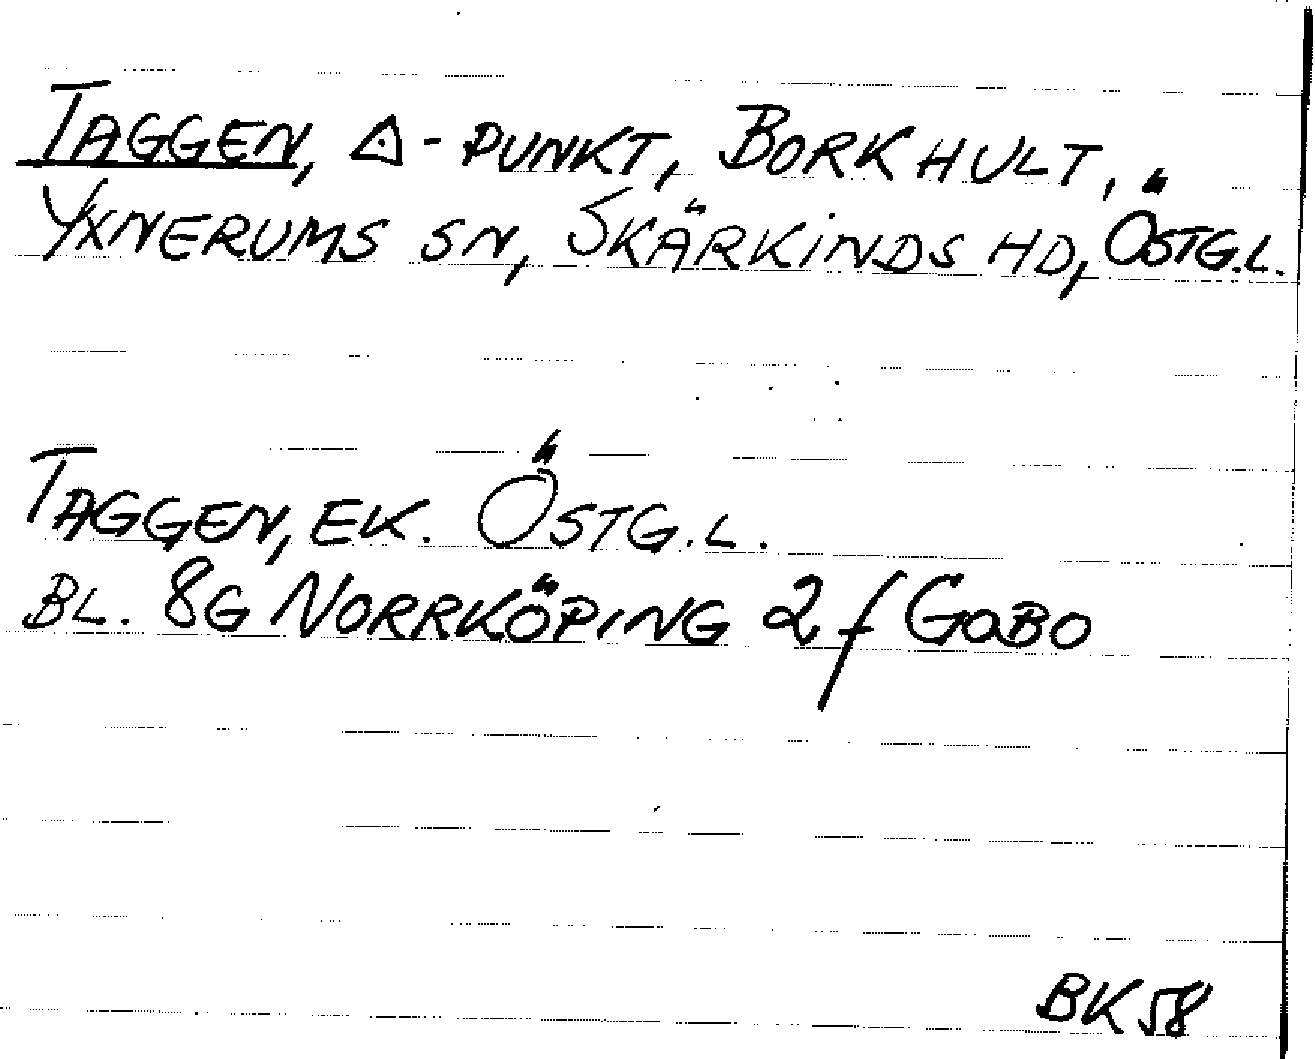 TAGGEN, △-PUNKT, BORKHULT,
YXNERUMS SN, SKÄRKINDS HD, ÖSTG.L.
TAGGEN, EK. ÖSTG.L.
BL. 8G NORRKÖPING 2f GOBO
BK58